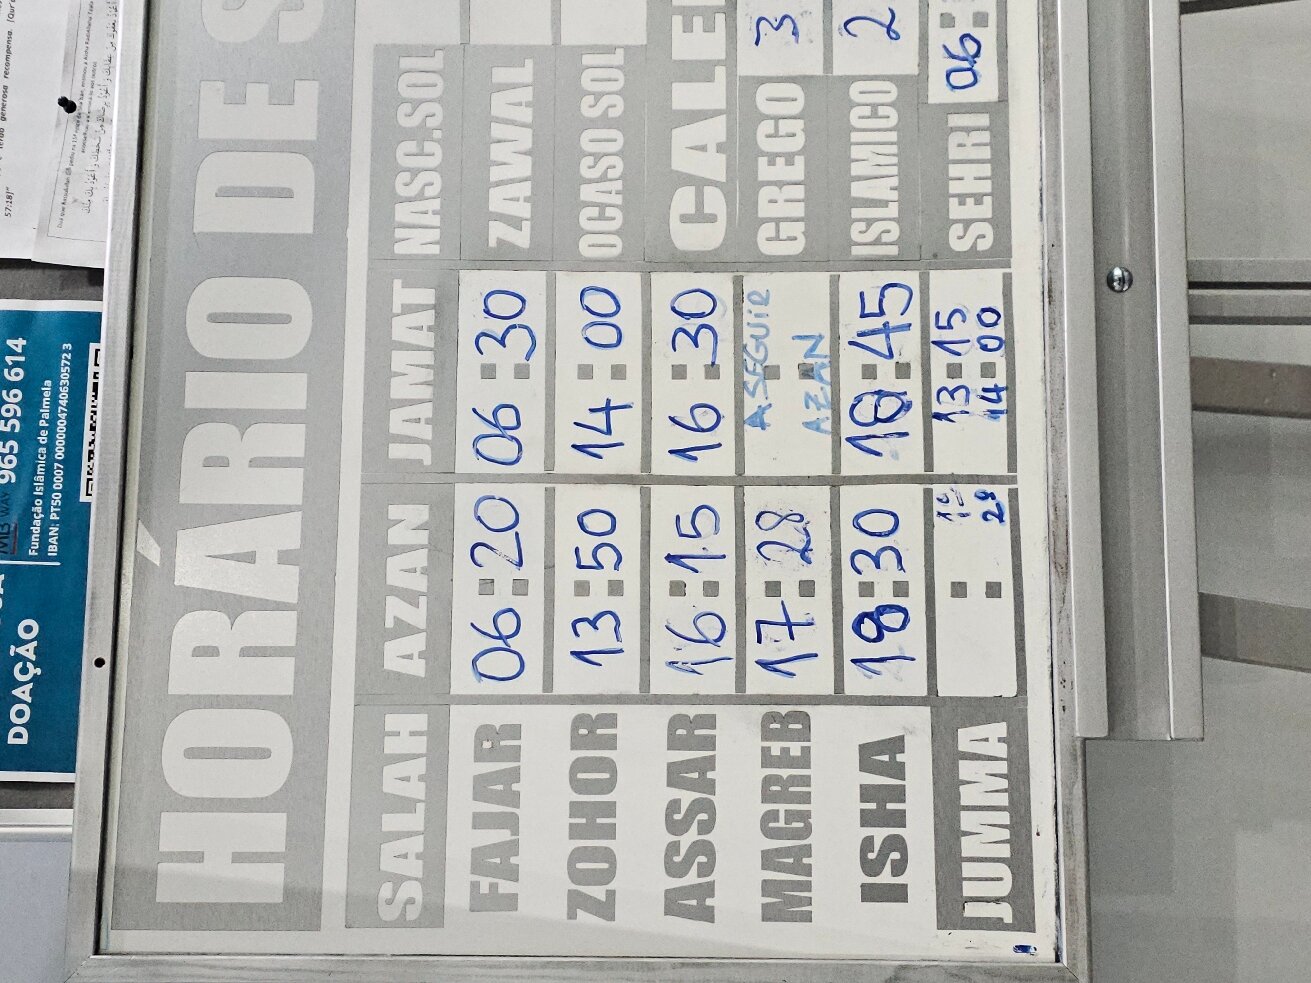 HORÁRIO DE S
SALAH AZAN JAMAT NASC.SOL
FAJAR 06:20 06:30 ZAWAL
ZOHOR 13:50 14:00 OCASO SOL
ASSAR 16:15 16:30 CALE
MAGREB 17:28 A SEGUIR AZAN GREGO 3
ISHA 18:30 18:45 ISLAMICO 2
JUMMA 1º 13:15 SEHRI 06:
2º 14:00
DOAÇÃO
WAY 965 596 614
Fundação Islâmica de Palmela
IBAN: PT50 0007 0000000474063057​2 3
generosa recompensa.
57:18]"